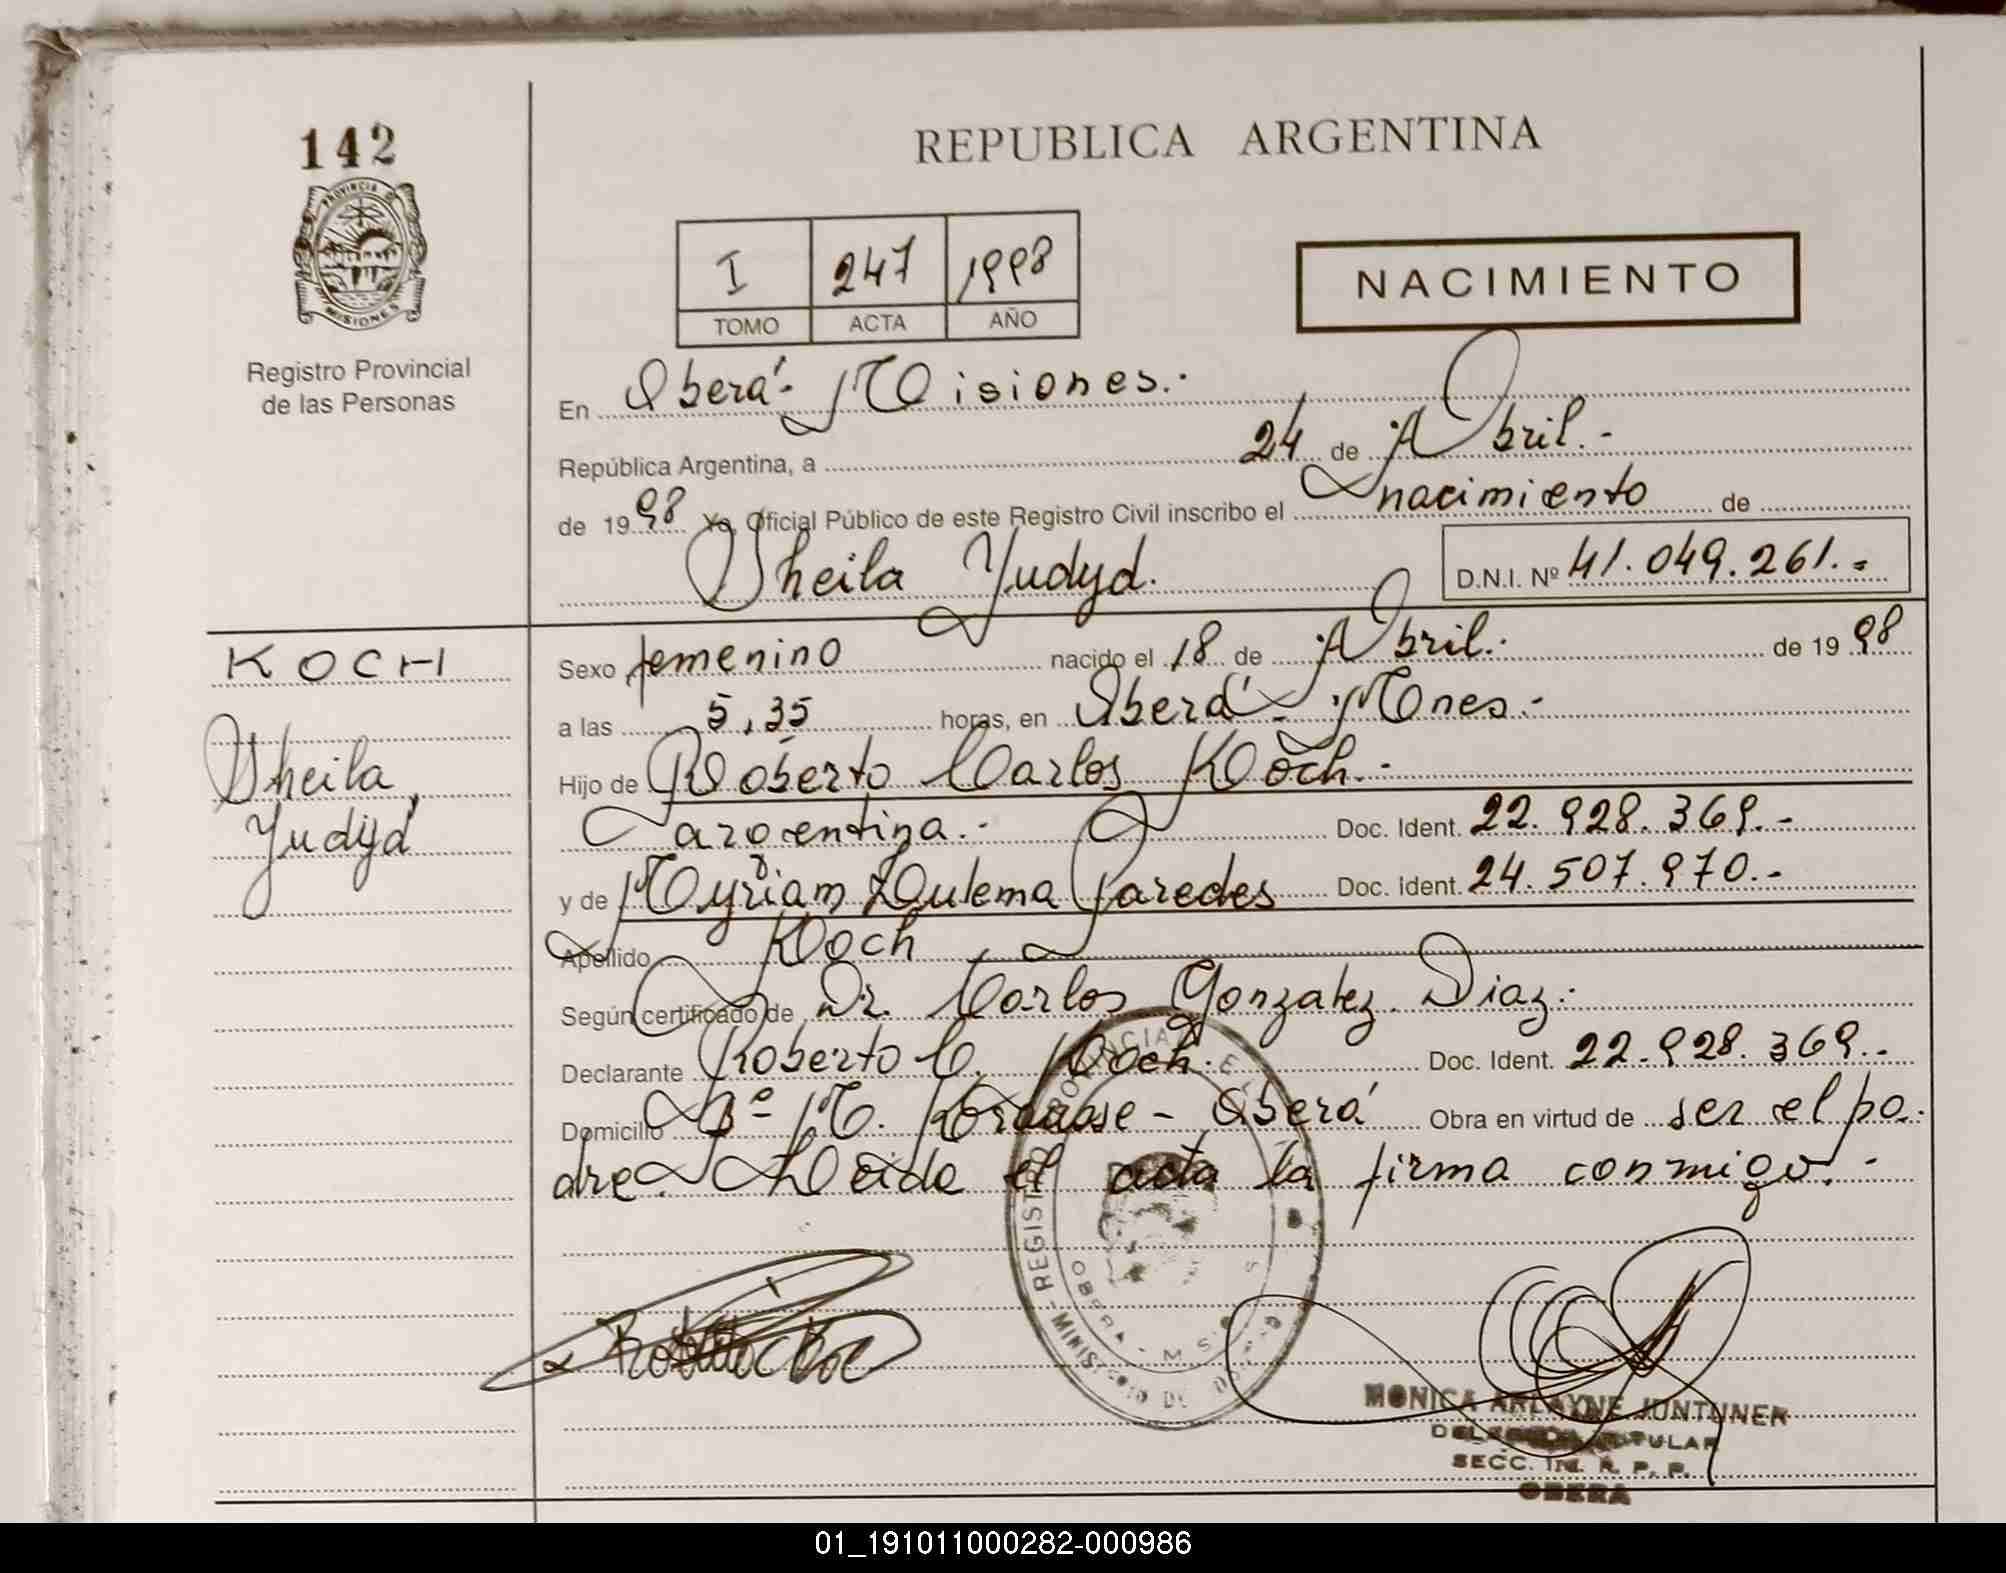 142
PROVINCIA DE
MISIONES
Registro Provincial
de las Personas
REPUBLICA ARGENTINA
I 247 1998
TOMO ACTA AÑO
NACIMIENTO
En Oberá - Misiones.-
República Argentina, a 24 de Abril.-
de 1998 Yo, Oficial Público de este Registro Civil inscribo el nacimiento de
Sheila Yudyd. D.N.I. Nº 41.049.261.-
KOCH
Sheila
Yudyd
Sexo femenino nacido el 18 de Abril. de 1998
a las 5,35 horas, en Oberá - Mnes.-
Hijo de Roberto Carlos Koch.-
argentina.- Doc. Ident. 22.928.369.-
y de Myriam Zulema Paredes Doc. Ident. 24.507.970.-
Apellido Koch
Según certificado de Dr. Carlos Gonzalez Diaz.-
Declarante Roberto C. Koch. Doc. Ident. 22.928.369.-
Domicilio Bº M. - Oberá Obra en virtud de ser el pa-
dre. Leida el acta la firma conmigo.-
REGISTRO PROVINCIAL DE
MINISTERIO DE
OBERA - MS
MONICA ARLAYNE JUNTUNEN
TITULAR
SECC. R. P. P.
OBERA
01_191011000282-000986